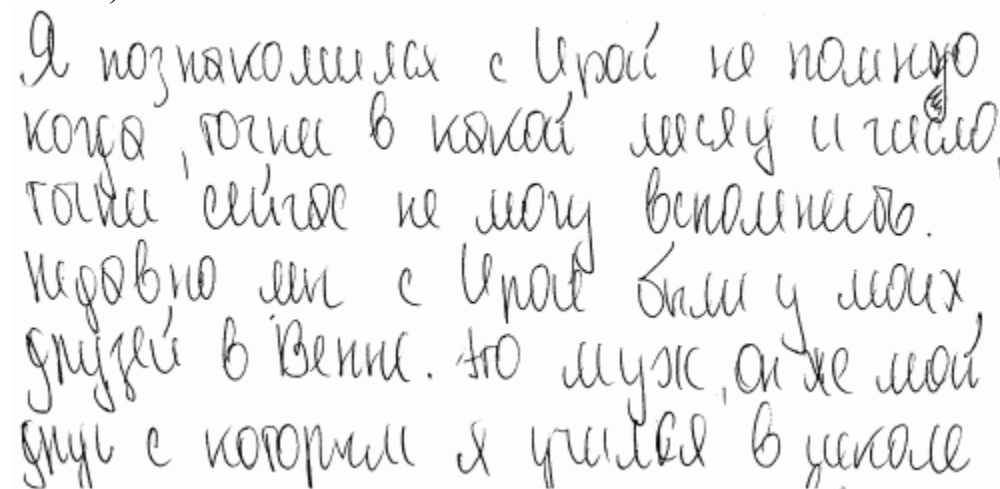 Я познакомился с Ирой не помню
когда, точни в какой месяц и число,
точни сейчас не могу вспомнить.
Недавно мы с Ирой были у моих
друзей в Вене. Но муж, он же мой
друг с которым я учился в школе